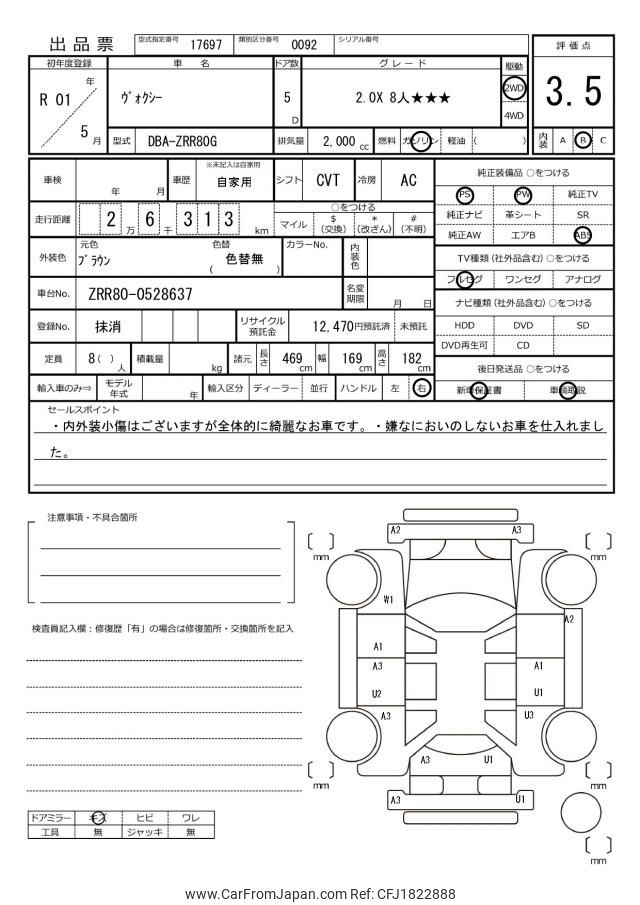 出品票 型式指定番号 17697 類別区分番号 0092 シリアル番号
評価点
3.5
内装 A B C
初年度登録 車名 ドア数 グレード 駆動
R 01 年 5 月 ヴォクシー 5 D 2.0X 8人★★★ 2WD 4WD
型式 DBA-ZRR80G 排気量 2,000 cc 燃料 ガソリン 軽油 ( )
車検 年 月 車歴 ※未記入は自家用 自家用 シフト CVT 冷房 AC
走行距離 2 万 6 千 3 1 3 km
○をつける
マイル $(交換) *(改ざん) #(不明)
外装色 元色 ブラウン 色替 ( 色替無 ) カラーNo. 内装色
車台No. ZRR80-0528637 名変期限 月 日
登録No. 抹消 リサイクル預託金 12,470円預託済 未預託
定員 8( )人 積載量 kg 諸元 長さ 469 cm 幅 169 cm 高さ 182 cm
輸入車のみ⇒ モデル年式 年 輸入区分 ディーラー 並行 ハンドル 左 右
純正装備品 ○をつける
PS PW 純正TV
純正ナビ 革シート SR
純正AW エアB ABS
TV種類(社外品含む) ○をつける
フルセグ ワンセグ アナログ
ナビ種類(社外品含む) ○をつける
HDD DVD SD
DVD再生可 CD
後日発送品 ○をつける
新車保証書 車輌取説
セールスポイント
・内外装小傷はございますが全体的に綺麗なお車です。・嫌なにおいのしないお車を仕入れまし
た。
注意事項・不具合箇所
検査員記入欄：修復歴「有」の場合は修復箇所・交換箇所を記入
ドアミラー キズ ヒビ ワレ
工具 無 ジャッキ 無
A2 A3
mm mm
W1 A2
A1
A3 A1
U2 U1
A3 U3
A3 U1
mm mm
A3 U1
mm
www.CarFromJapan.com Ref: CFJ1822888